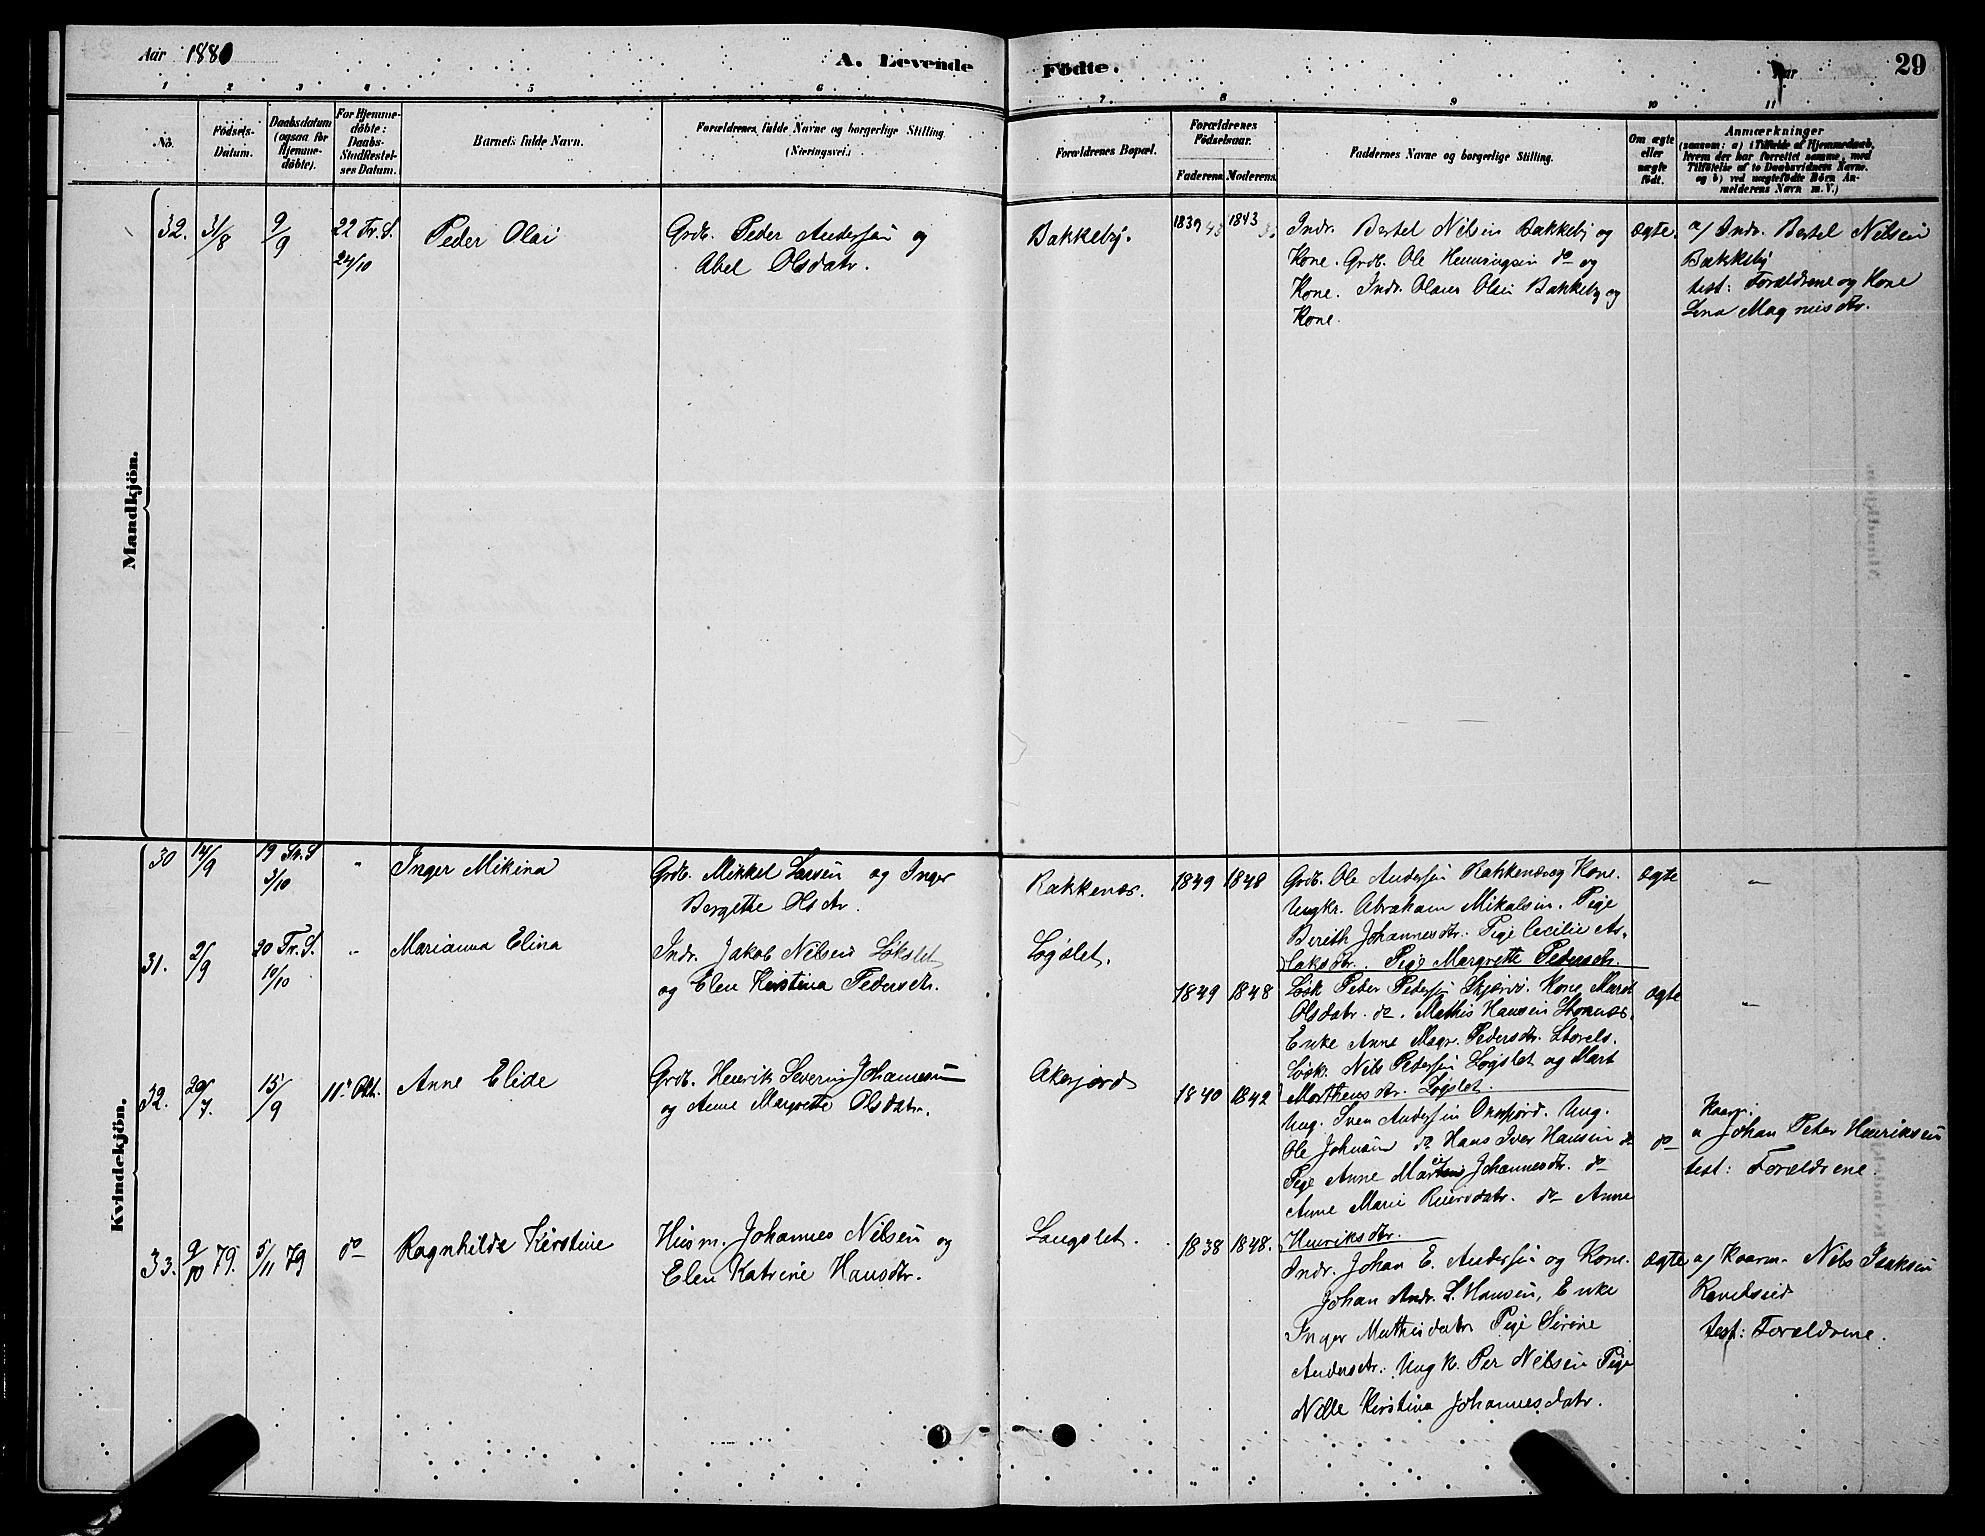 Aar 1880
A. Levende
Födte.
Aar
29
1 2 3 4 5 6 7 8 9 10 11
No.
Födsels-Datum.
Daabsdatum (ogsaa for Hjemme-döbte).
For Hjemme-döbte: Daabs-Stadfæstel-ses Datum.
Barnets fulde Navn.
Forældrenes fulde Navne og borgerlige Stilling (Næringsvei.)
Forældrenes Bopæl.
Forældrenes Födselsaar.
Faderens. Moderens.
Faddernes Navne og borgerlige Stilling.
Om ægte eller uægte födt.
Anmærkninger
(saasom: a) i Tilfælde af Hjemmedaab,
hvem der har forrettet samme, med
Tilföielse af to Daabsvidners Navne.
og b) ved uægtefödte Börn An-
melderens Navn m. V.)
Mandkjön.
32. 31/8 9/9 22 Tr. S. 24/10
Peder Olai
Grdb. Peder Andersen og
Abel Olsdatr.
Bakkeby.
1839 1843
Indr. Bertel Nilsen Bakkeby og
Kone. Grdb. Ole Henningsen do og
Kone. Indr. Olaus Olsen Bakkeby og
Kone.
ægte.
a/ Indr. Bertel Nilsen
Bakkeby
test: Forældrene og Kone
Lina Magnusdtr.
Kvindekjön.
30 14/9 19 Tr. S 3/10 "
Inger Mikina
Grdb. Mikkel Larsen og Inger
Bergette Olsdtr.
Rakkenæs.
1849 1848
Grdb. Ole Andersen Rakkenæs og Kone.
Ungkr. Abraham Mikalsen. Pige
Berith Johannesdtr. Pige Cecilie As-
laksdtr. Pige Margrette Pedersdtr.
ægte
"
31. 2/9 20 Tr. S. 10/10 "
Marianna Elina
Indr. Jakob Nilsen Løkslet
og Elen Kirstina Pedersdtr.
Løgslet.
1849 1848
Løsk Peder Pedersen Skjærvö. Kone Maret
Olsdatr. do. Mathis Hansen Stornæs.
Enke Anne Magr. Pedersdtr. Storels.
Løsk. Nils Pedersen Løgslet og Mart
Morthensdtr. Løgslet.
ægte
"
32. 20/7. 15/9 10de Okt.
Anne Elide
Grdb. Henrik Severin Johannesen
og Anne Margrette Olsdatr.
Oksfjord
1840 1842
Ung. Sven Andersen Oksfjord. Ung.
Ole Johnsen do Hans Iver Hansen do
Pige Anne Johannesdtr. do
Anne Marie Reiersdatr. do Anne
Henriksdtr.
do
Kaarm.
a Johan Peter Henriksen
test: Forældrene.
33. 9/10 79. 5/11 79 do
Ragnhilde Kirstine
Husm. Johannes Nilsen og
Elen Katrine Hansdtr.
Langslet.
1838 1848.
Indr. Johan E. Andersen og Kone.
Johan Andr. L. Hansen, Enke
Inger Mathisdatr Pige Sirine
Andersdtr. Ungk. Per Nilsen Pige
Nille Kirstina Johannesdatr.
ægte
a/ Kaarm. Nils Isaksen
Ravelseid
test: Forældrene.